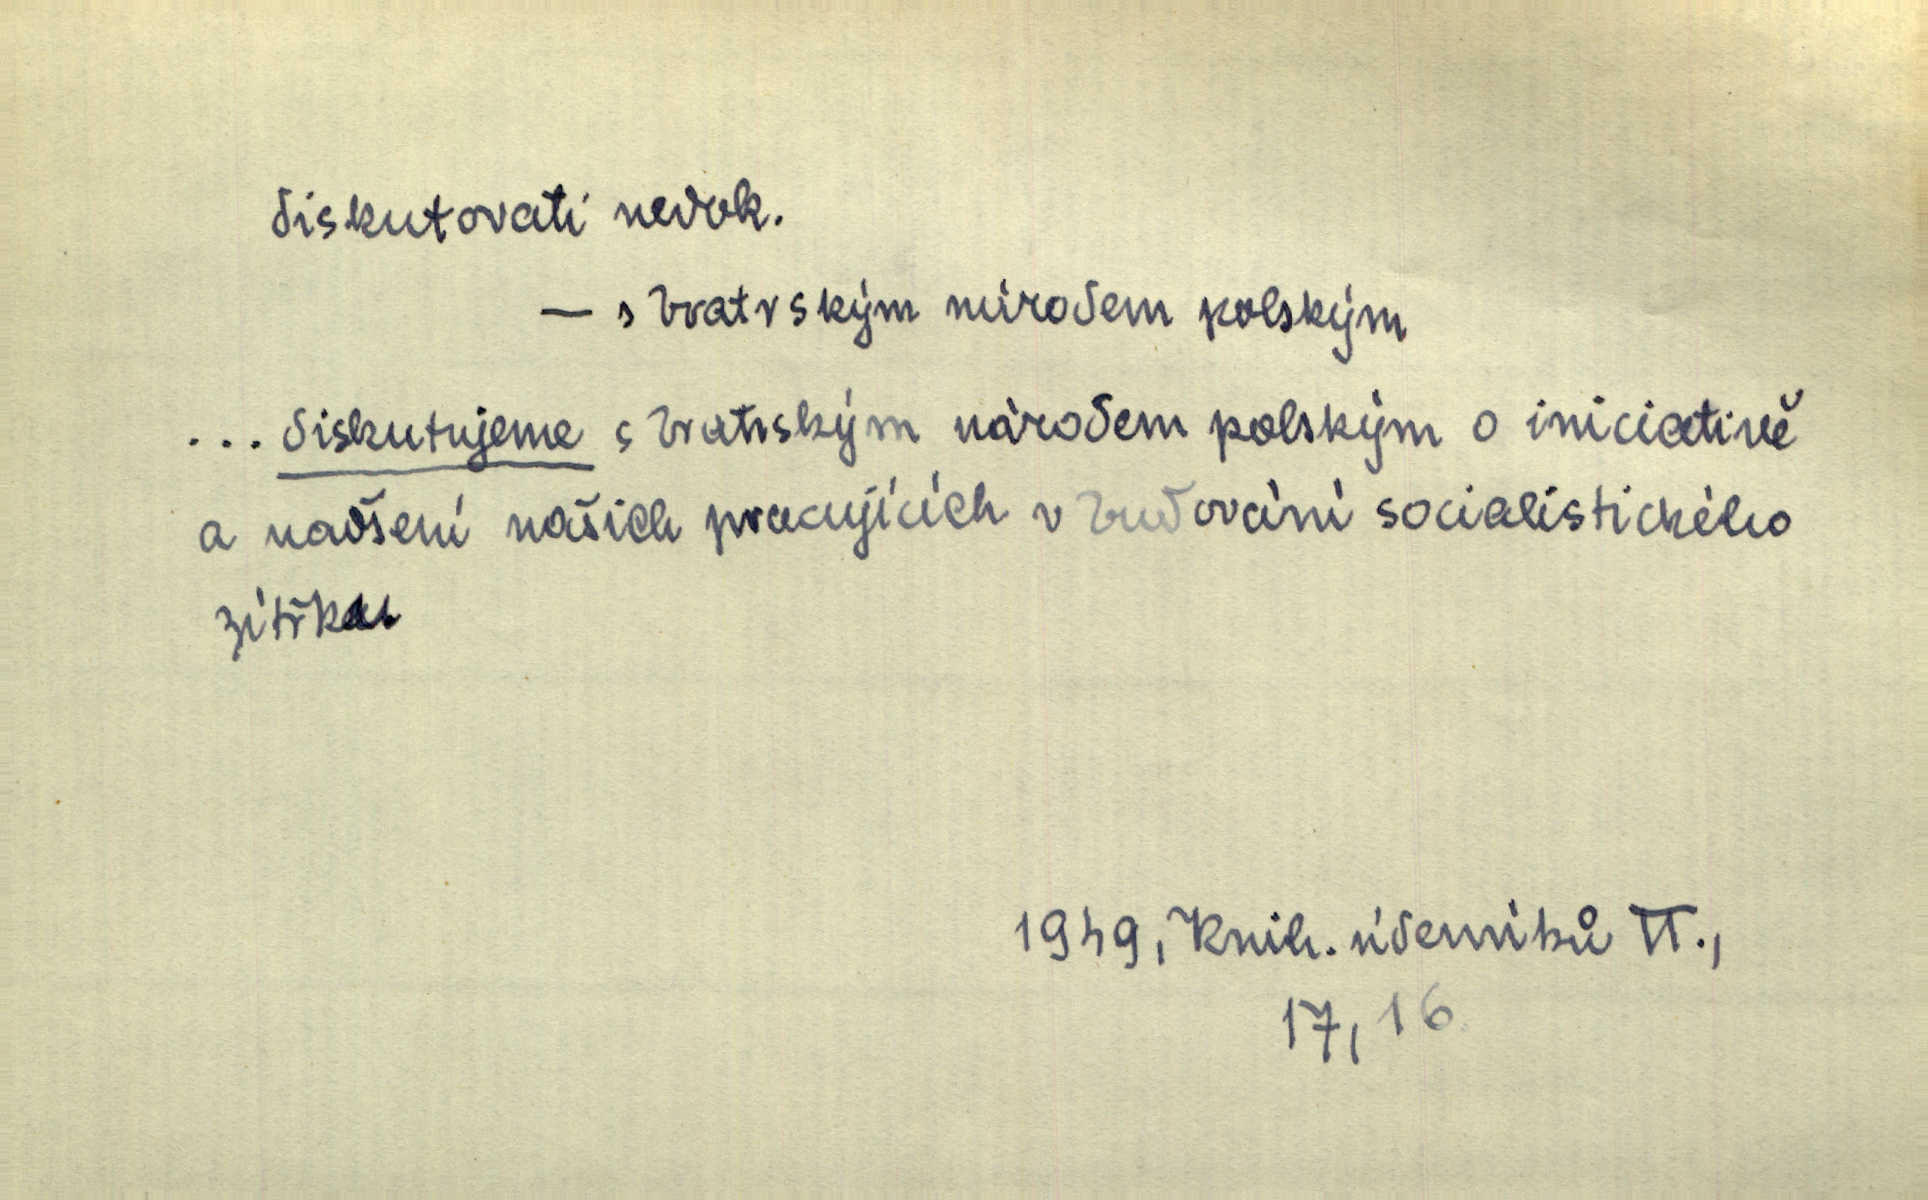 diskutovati nedok.
— s bratrským národem polským
... diskutujeme s bratrským národem polským o iniciativě
a nadšení našich pracujících v budování socialistického
zítřka
1949, Knih. úderníků II.,
17, 16